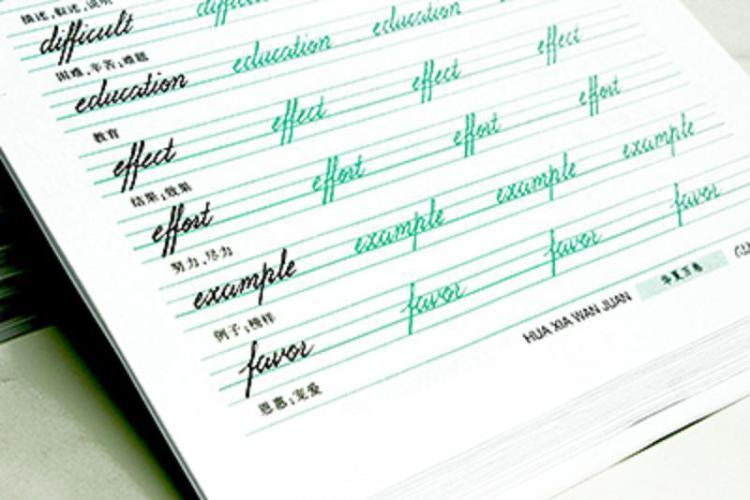 描述,叙述,说明
difficult diff
困难,辛苦;难题
education education education
教育
effect effect effect effect
结果;效果
effort effort effort effort
努力,尽力
example example example example
例子;榜样
favor favor favor favor
恩惠;宠爱
HUA XIA WAN JUAN 华夏万卷